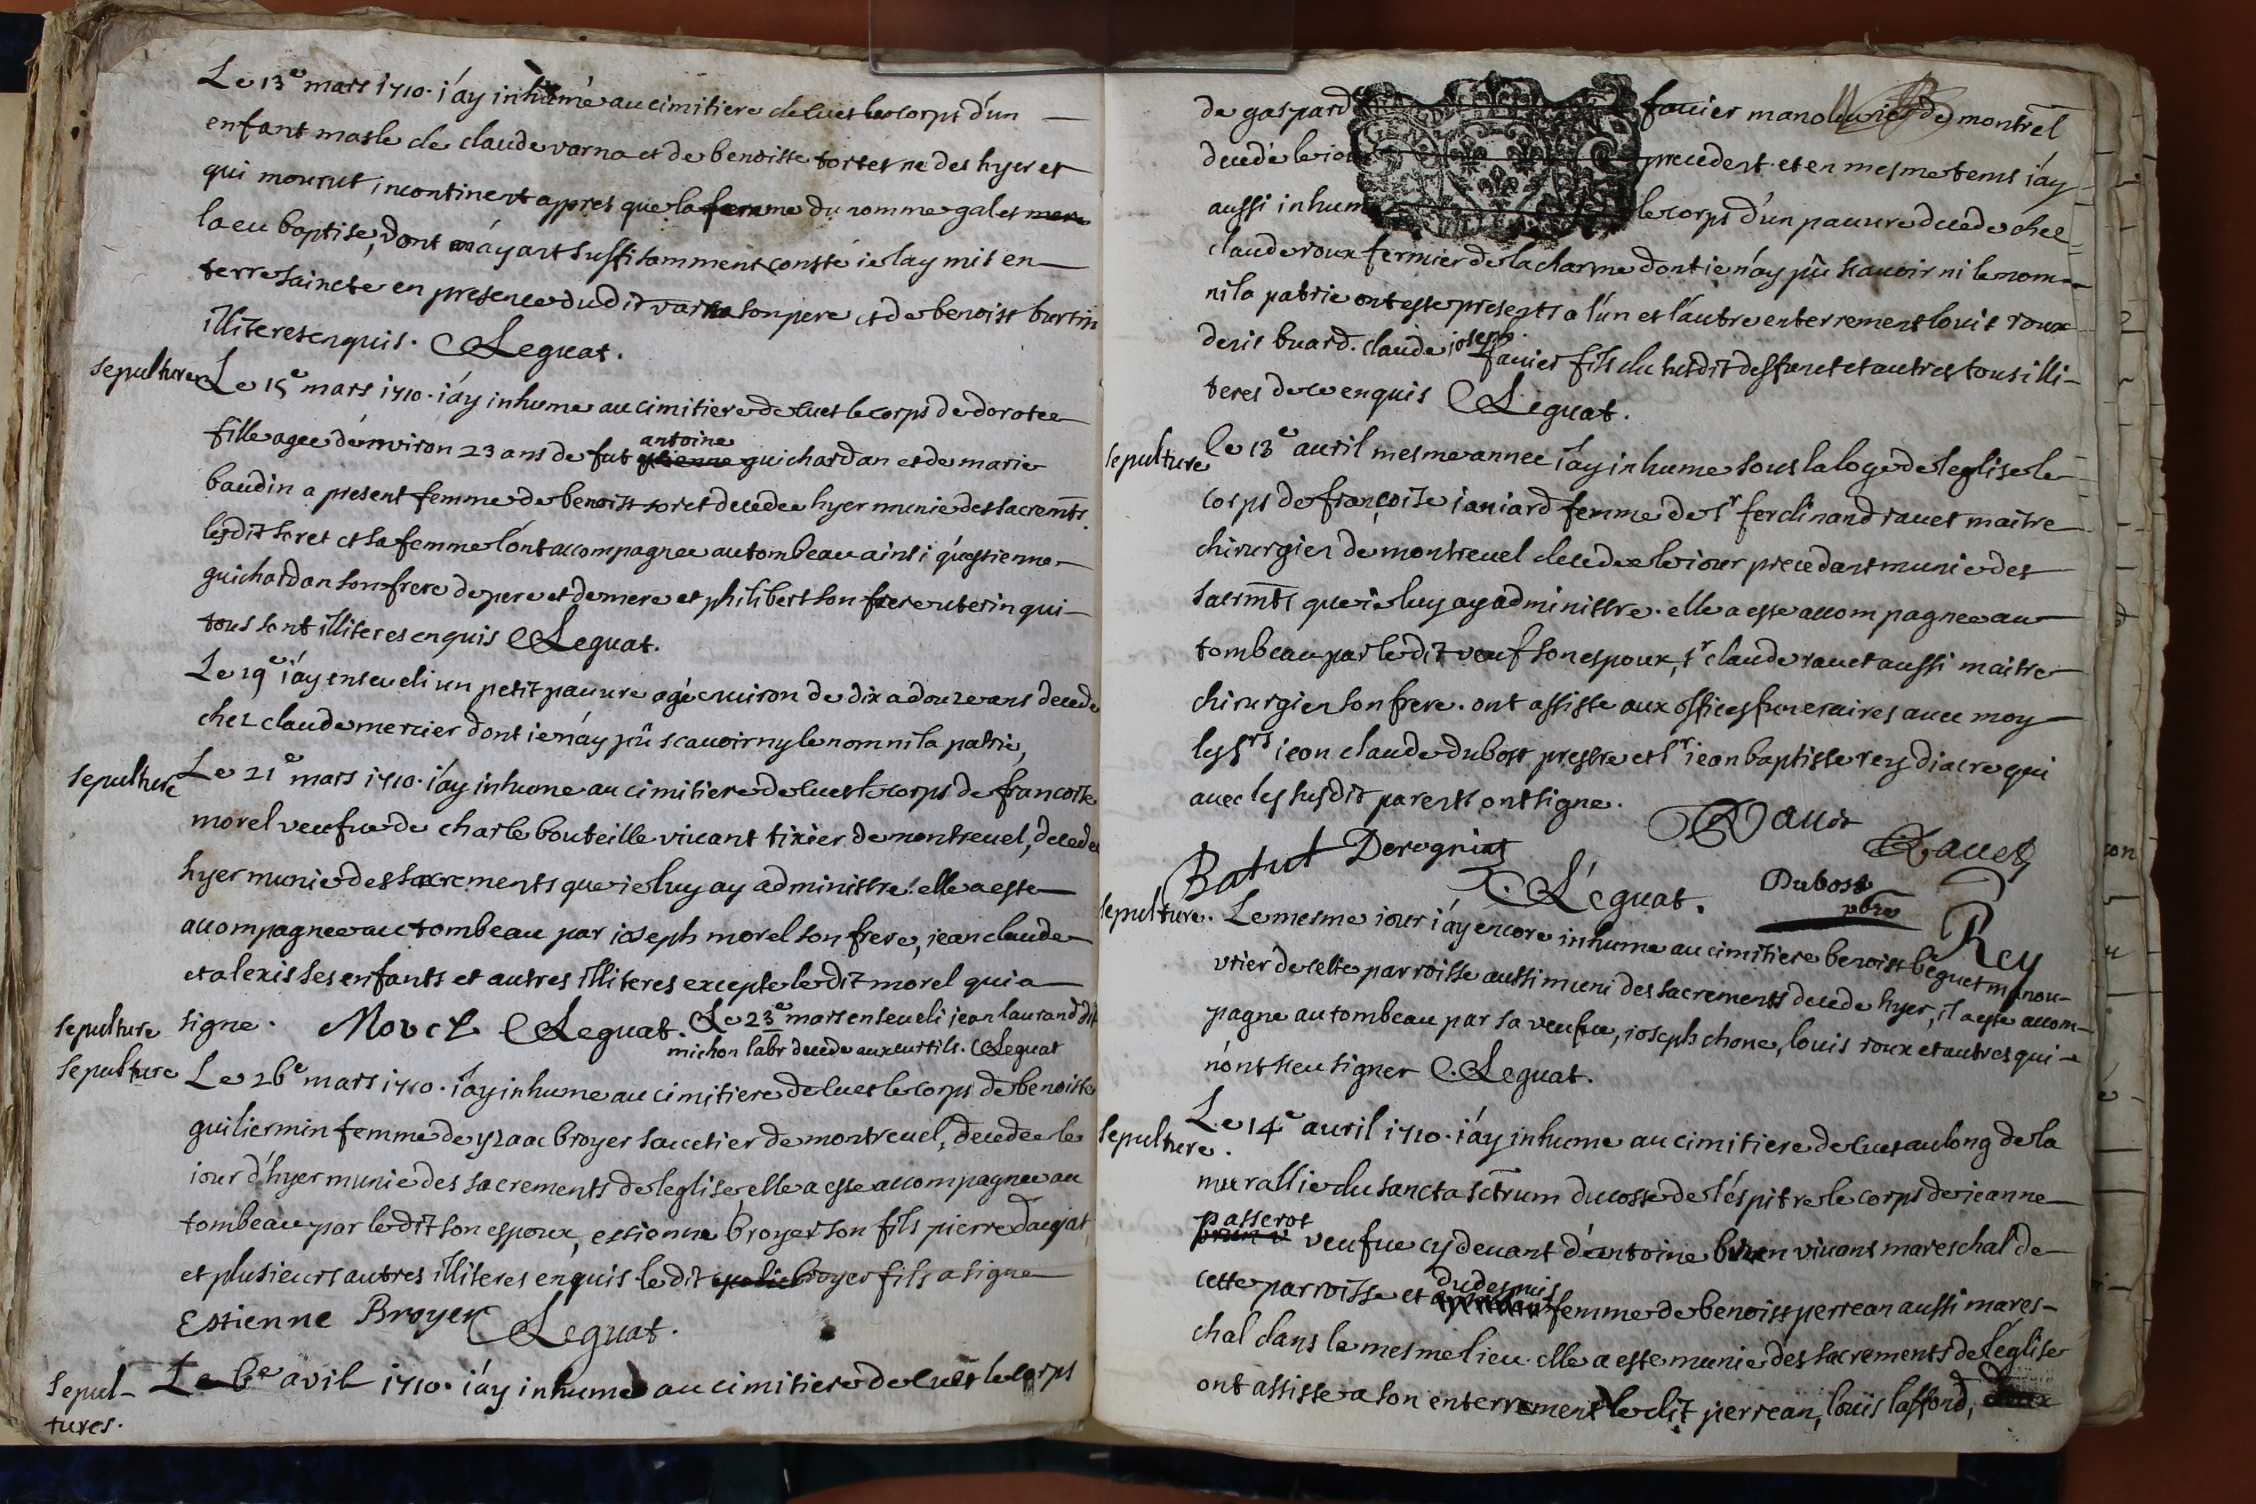 Le 13e mars 1710. i'ay inhumé au cimitiere de cuet le corps d'un
enfant masle de claude varna et de benoiste tortet né des hyer et
qui mourut incontinent appres que la femme du nomme galet
la eu baptise, dont m'ayant suffisamment consté ie lay mis en
terre saincte en presence dudit varna son pere et de benoist burtin
illiteres enquis. Leguat.
sepulture Le 15e mars 1710. i'ay inhume au cimitiere de cuet le corps de dorotee
fille agee d'environ 23 ans de fut antoine guichardan et de marie
baudin a present femme de benoist soret decedee hyer munie des sacremts.
lesdit soret et sa femme l'ont accompagnee au tombeau ainsi qu'estienne
guichardan son frere de pere et de mere et philibert son frere uterin qui
tous sont illiteres enquis Leguat.
Le 19e i'ay enseueli un petit pauure agé enuiron de dix a douze ans decede
chez claude mercier dont ie n'ay pû scauoir ny le nom ni la patrie,
sepulture Le 21e mars 1710. i'ay inhume au cimitiere de cuet le corps de francoise
morel veufue de charle bouteille viuant tixier de montreuel, decedee
hyer munie des sacrements que ie luy ay administre. elle a este
accompagnee au tombeau par ioseph morel son frere, jean claude
et alexis ses enfants et autres illiteres excepte ledit morel qui a
sepulture signe. Morel Leguat. Le 23e mars enseueli jean laurand dit
michon labr decede aux curtils. Leguat
sepulture Le 26e mars 1710. i'ay inhume au cimitiere de cuet le corps de benoiste
guiliermin femme de yzaac broyer saccetier de montreuel, decedee le
iour d'hyer munie des sacrements de leglise, elle a este accompagnee au
tombeau par ledit son espoux, estienne broyer son fils pierre daujat
et plusieurs autres illiteres enquis ledit broyer fils a signe
Estienne Broyer Leguat.
sepul- Le 6e avil 1710. i'ay inhume au cimitiere de cuet le corps
tures.
de gaspard fauier manouurier de montrel
decedé le iour precedent. et en mesme tems i'ay
aussi inhum le corps d'un pauure decede chez
claude roux fermier de la charme dont ie n'ay pû scauoir ni le nom
ni la patrie ont este presents a l'un et l'autre enterrement louis roux
denis buard. claude ioseph fauier fils du susdit deffunct et autres tous illi-
teres de ce enquis Leguat.
sepulture le 13e auril mesme annee i'ay inhume sous la loge de leglise le
corps de françoise ianiard femme de sr ferdinand rauet maitre
chirurgien de montreuel decedee le iour precedant munie des
sacrmts que ie luy ay administre. elle a este accompagnee au
tombeau par ledit veuf son espoux, sr claude rauet aussi maitre
chirurgien son frere. ont assiste aux offices funeraires auec moy
les srs iean claude dubost prestre et sr iean baptiste rey diacre qui
auec les susdit parents ont signe. Rauet
Rauet
Batut Deregnius Leguat. Dubost
pbre Rey
sepulture. Le mesme iour i'ay encore inhume au cimitiere benoist beguet manou-
urier de cette parroisse aussi muni des sacrements decede hyer, il a este accom-
pagne au tombeau par sa veufue, ioseph chone, louis roux et autres qui
n'ont sceu signer Leguat.
sepulture. Le 14e auril 1710. i'ay inhume au cimitiere de cuet au long de la
murallie du sancta sctrum du costé de l'espitre le corps de jeanne
passerot veufue cy deuant d'antoine viuant mareschal de
cette parroisse et du despuis femme de benoist perrean aussi mares-
chal dans le mesme lieu. elle a este munie des sacrements de l'eglise
ont assiste a son enterrement ledit perrean, louis laffond,